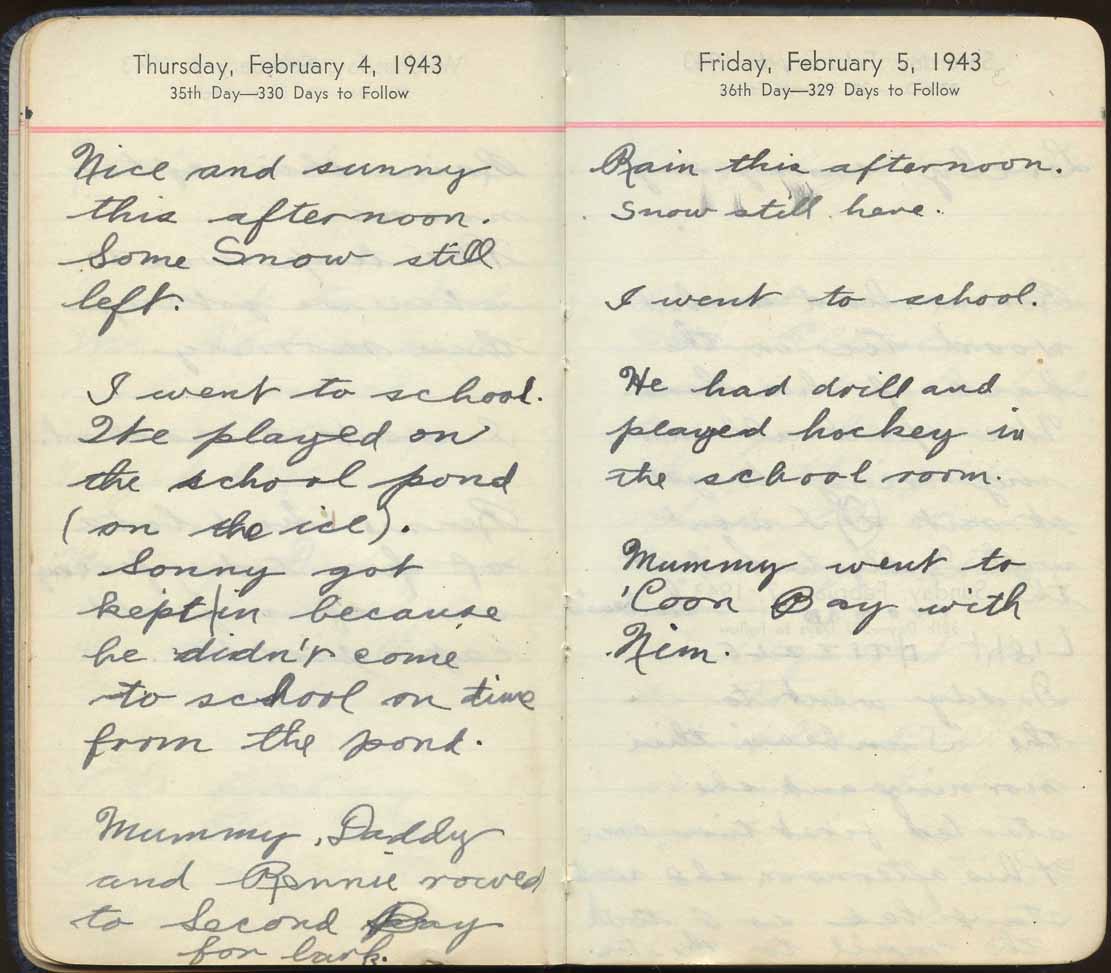 Thursday, February 4, 1943
35th Day—330 Days to Follow
Nice and sunny
this afternoon.
Some Snow still
left.
I went to school.
We played on
the school pond
(on the ice).
Sonny got
kept in because
he didn't come
to school on time
from the pond.
Mummy, Daddy
and Ronnie rowed
to Second Bay
for bark.
Friday, February 5, 1943
36th Day—329 Days to Follow
Rain this afternoon.
Snow still here.
I went to school.
We had drill and
played hockey in
the school room.
Mummy went to
'Coon Bay with
Nim.